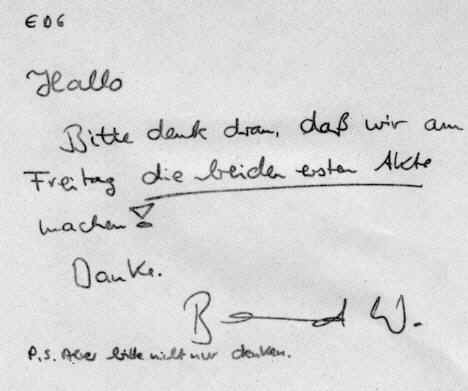 E06
Hallo
Bitte denk dran, daß wir am
Freitag die beiden ersten Akte
machen!
Danke.
Bernd W.
P.S. Aber bitte nicht nur denken.